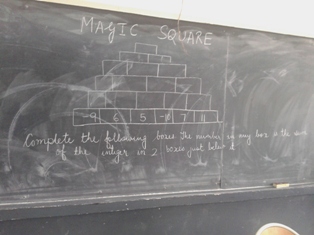 MAGIC SQUARE
-9 6 5 -10 7 11
Complete the following boxes The number in any box is the sum
of the integer in 2 boxes just below it